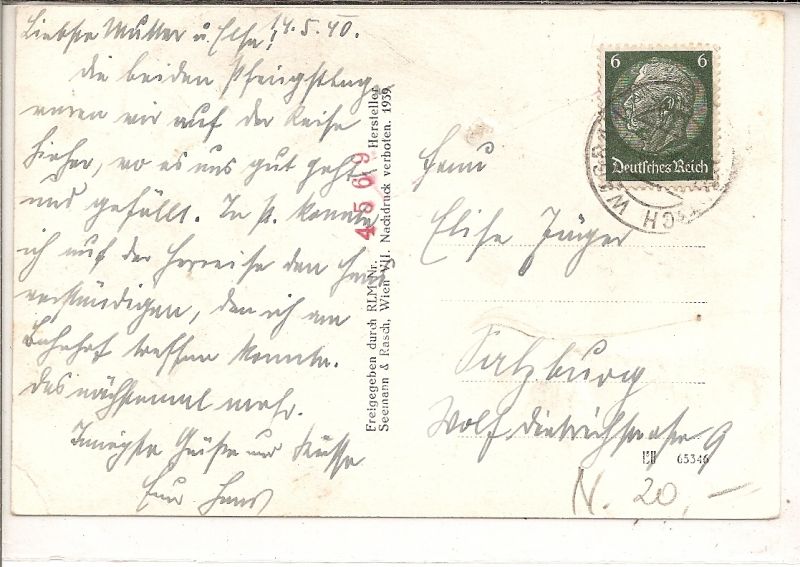 Liebste Mutter u. Else! 14.5.40.
Die beiden Pfingsttage
waren wir auf der Reise
hieher, wo es uns gut geht
und gefällt. In konnte
ich auf der Herreise den Hans
verständigen, den ich am
Bahnhof treffen konnte.
Das nächstemal mehr.
Innigste Grüsse und Küsse
Euer Hans
Freigegeben durch RLM Nr. 45 69 Hersteller
Seemann & Rasch, Wien VII. Nachdruck verboten. 1939.
6 6
Deutsches Reich
Frau
Elise Jäger
Salzburg
Wolf Dietrichstrasse 9
65346
N. 20,—